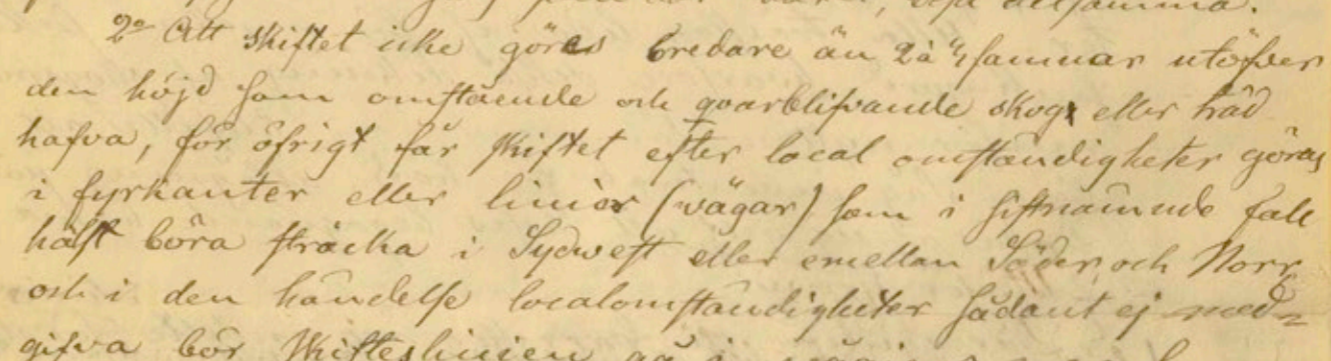 allsamma.
2o Att skiftet icke göres bredare än 2 à 4 famnar utöfver
den höjd som omstående och qvarblifvande skog eller träd
hafva, för öfrigt får skiftet efter local omständigheter göras
i fyrkanter eller linior (vägar) som i sistnämnde fall
hälst böra sträcka i Sydwest eller emellan Söder och Norr
och i den händelse localomständigheter sådant ej med-
gifva bör skifteslinien gå i